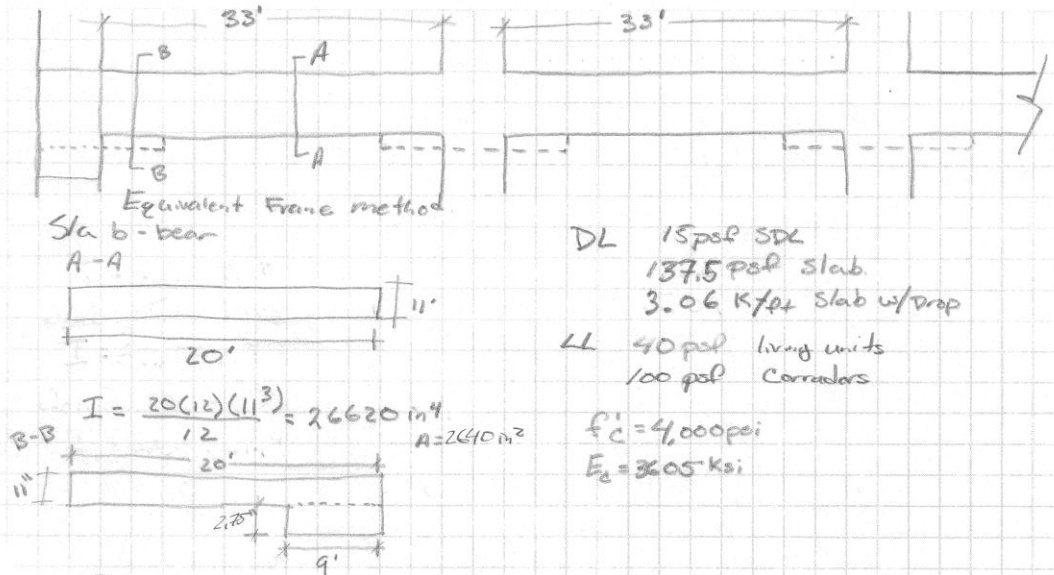 33' 33'
B A
B A
Equivalent Frame method
Slab-beam
A-A
11"
20'
I = 20(12)(11³)/12 = 26620 in⁴
A=2640 in²
B-B
20'
11"
2.75"
9'
DL 15psf SDL
137.5 psf Slab
3.06 K/ft Slab w/Drop
LL 40 psf living units
100 psf Corradors
f'c = 4,000psi
Ec = 3605 Ksi